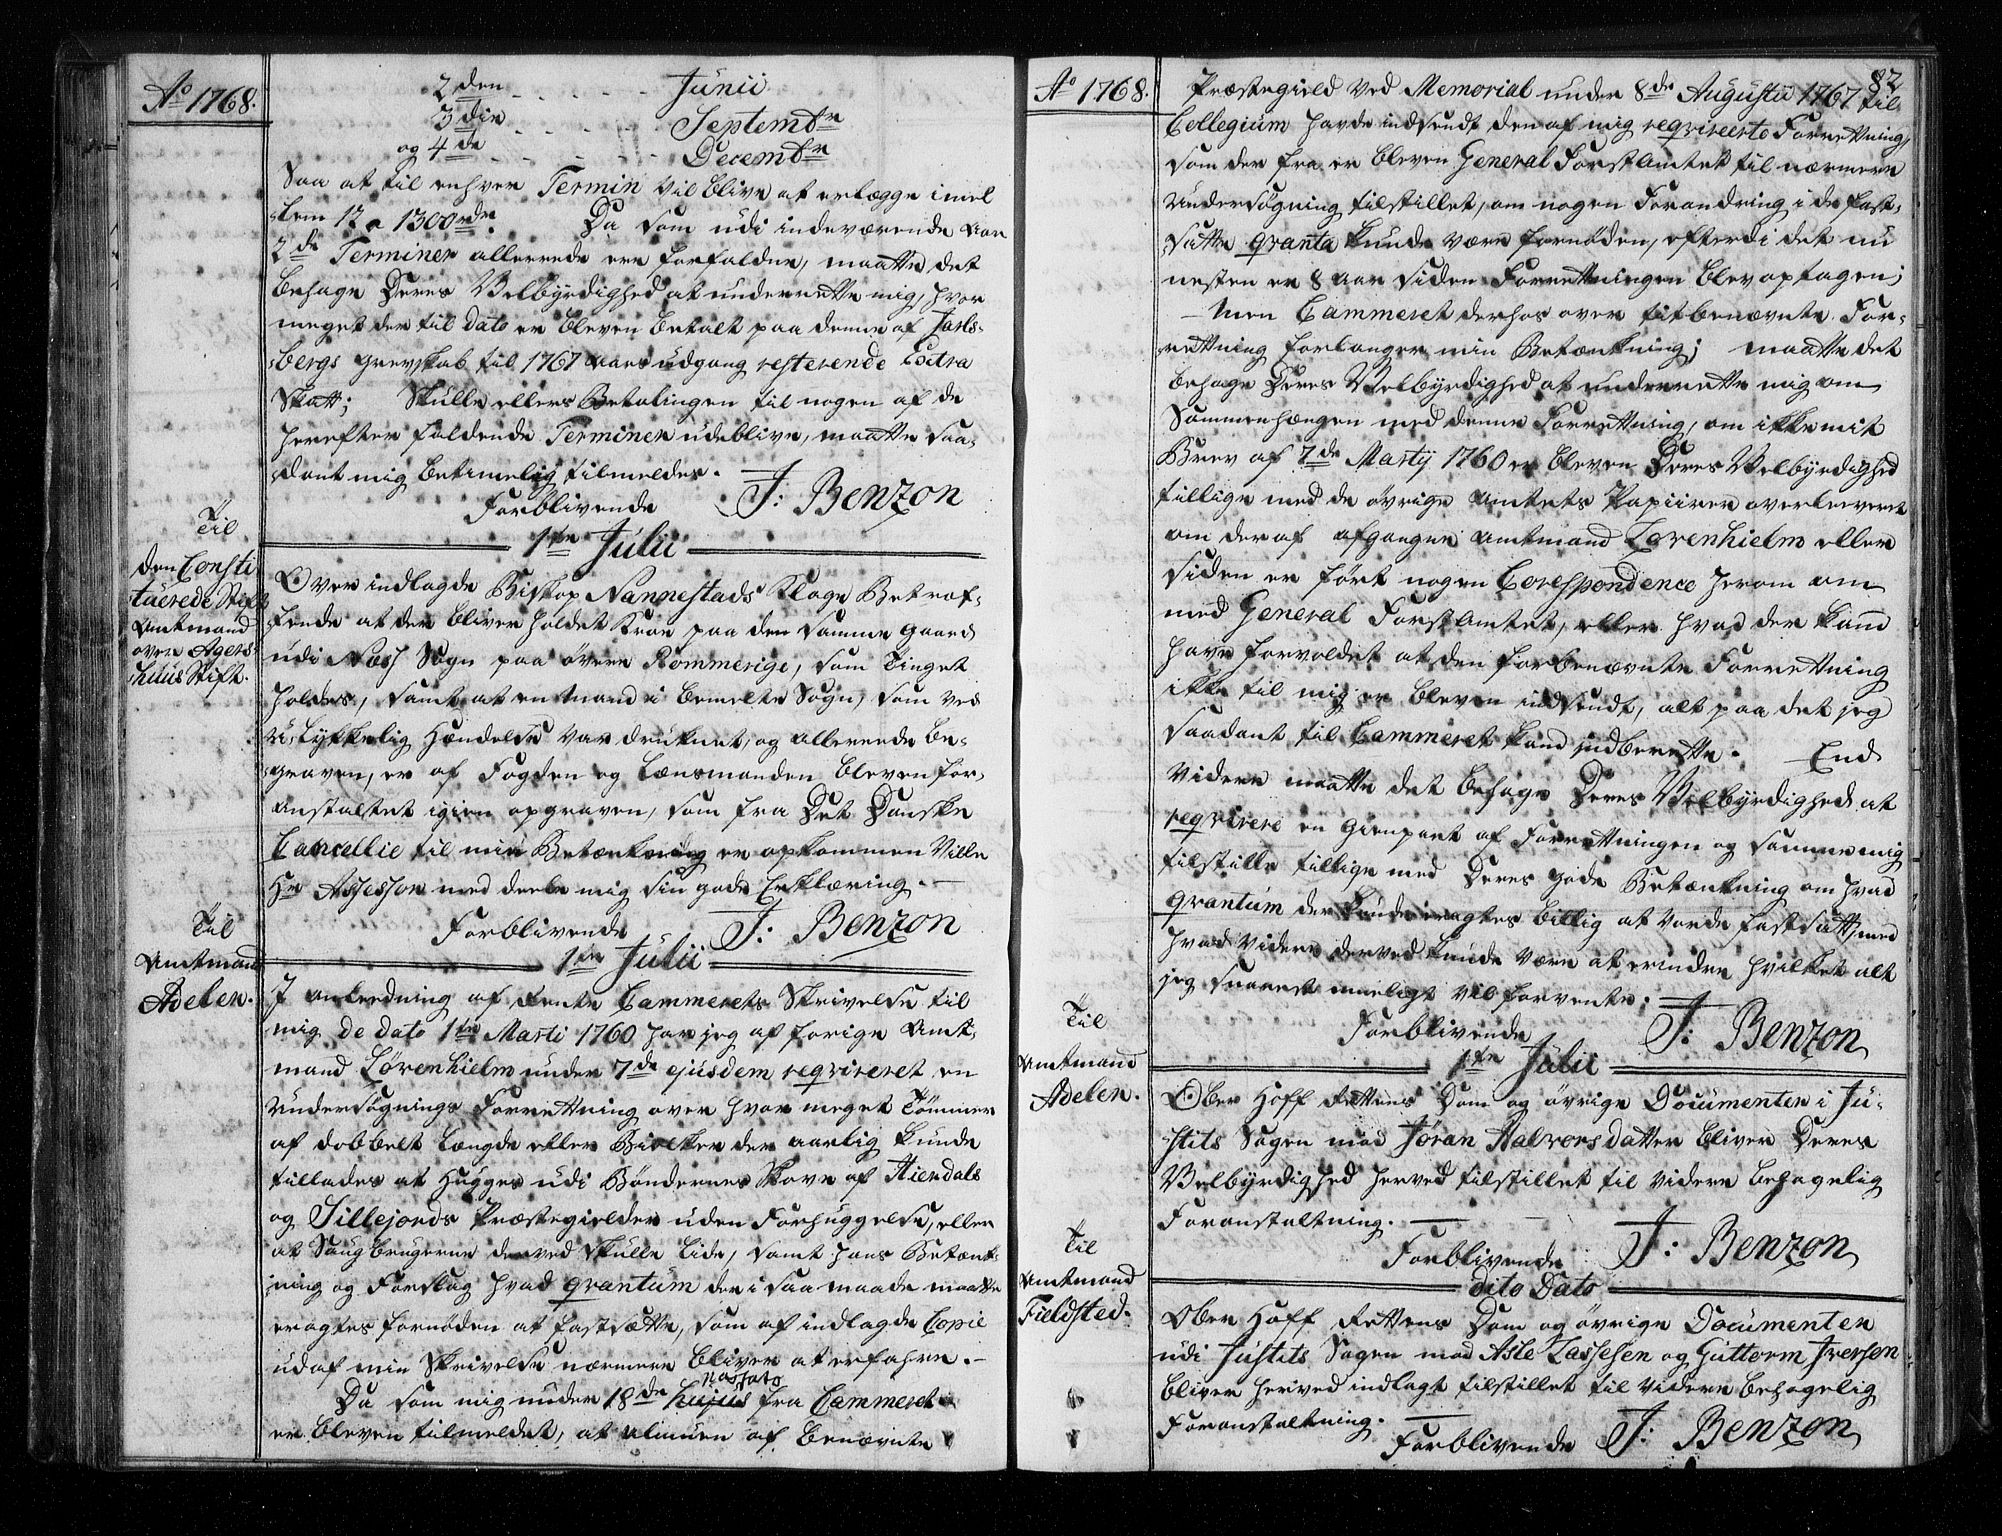 Ao 1768.
2den - - - - - Junii
3die - - - - - Septembr
og 4de - - - - - Decembr
Saa at til enhver Termin vil blive at erlægge imel
lem 12 a 1300rdr. Da som udi indeværende Aar
2de Terminer allerede ere forfaldne, maatte det
behage Deres Velbyrdighed at underrette mig, hvor
meget der til dato er bleven betalt paa denne af Jarls-
bergs Grevskab til 1767 Aars udgang resterende Extra
Skatt; Skulle ellers Betalingen til nogen af de
herefter faldende Terminer udeblive, maatte saa-
dant mig betimelig tilmeldes.
Forblivende J: Benzon
1te Julii
Til
den Consti
tuerede Stift
Amtmand
over Agers-
huus Stift.
Over indlagde Biskop Nannestads Klage Betref-
fende at der bliver holdet Kroe paa den samme Gaard
udi Næss Sogn paa øvere Rommerige, som Tinget
holdes, samt at en Mand i bemelte Sogn, som ved
u-lykkelig Hændelse var druknet, og allereede be-
graven, er af Fogden og Lænsmanden bleven for-
anstaltet igien opgraven, som fra Det Danske
Cancellie til min Betænkning er opkommen Ville
Hr Assessor med deele mig sin gode Erklæring.
Forblivende J: Benzon
1te Julii
Til
Amtmand
Adeler.
I anledning af Rente Cammerets Skrivelse til
mig de dato 1te Marti 1760 har jeg af forige Amt-
mand Løvenhielm under 7de ejusdem reqvireret en
Undersøgnings Forretning over hvor meget Tømmer
af dobbelt Længde eller Bielker der aarlig kunde
tillades at Hugges udi Bøndernes Skove af Hiendals
og Sillejords Præstegielder uden Forhuggelse, eller
at Saugbrugerne derved skulle lide, samt hans Betænk-
ning og Forslag hvad qvantum der i saa maade maatte
eragtes fornøden at fastsætte, som af indlagde Copie
udaf min Skrivelse nærmere bliver at erfahre.-
Da som mig under 18de hujus passato fra Cammeret
er bleven tilmeldet, at Almuen af benævnte
Ao 1768.
82
Præstegield ved Memorial under 8de Augusti 1767 til
Collegium havde indsendt den af mig reqvirerte Forretning,
som der fra er bleven General Forstamtet til nærmere
Undersøgning tilstillet, om nogen Forandring i de fast-
satte qvanta kunde være fornøden, efterdi det nu
nesten er 8 Aar siden Forretningen blev optagen;
- Men Cammeret derhos over titbenævnte For-
retning forlanger min Betænkning; maatte det
behage Deres Velbyrdighed at underrette mig om
Sammenhængen med denne Forretning, om ikke mit
Brev af 7de Marty 1760 er bleven Deres Velbyrdighed
tillige med de øvrige Amtets Papiirer overleeveret
om der af afgangne Amtmand Løvenhielm eller
siden er ført nogen Corespondence herom om
med General Forstamtet, eller hvad der kand
have forvoldet at den forbenævnte Forretning
ikke til mig er bleven indsendt, alt paa det jeg
saadant til Cammeret kand indberette. End
videre maatte det behage Deres Velbyrdighed at
reqvirere en Gienpart af Forretningen og samme mig
tilstille tillige med Deres gode Betænkning om hvad
qvantum der kunde eragtes billig at vorde fastsatt, med
hvad videre derved kunde være at erindre hvilket alt
jeg snarest mueligt vil forvente.
Forblivende J: Benzon
1te Julii
Til
Amtmand
Adeler.
Ober Hoff Rettens Dom og øvrige Documenter i Ju-
stits Sagen mod Jøran Halvorsdatter bliver Deres
Velbyrdighed herved tilstillet til videre behagelig
Foranstaltning.
Forblivende J: Benzon
dito Dato
Til
Amtmand
Fieldsted.
Ober Hoff Rettens Dom og øvrige Documenter
udi Justits Sagen mod Asle Lassesen og Guttorm Iversen
bliver herved indlagt tilstillet til videre behagelig
Foranstaltning.
Forblivende J: Benzon